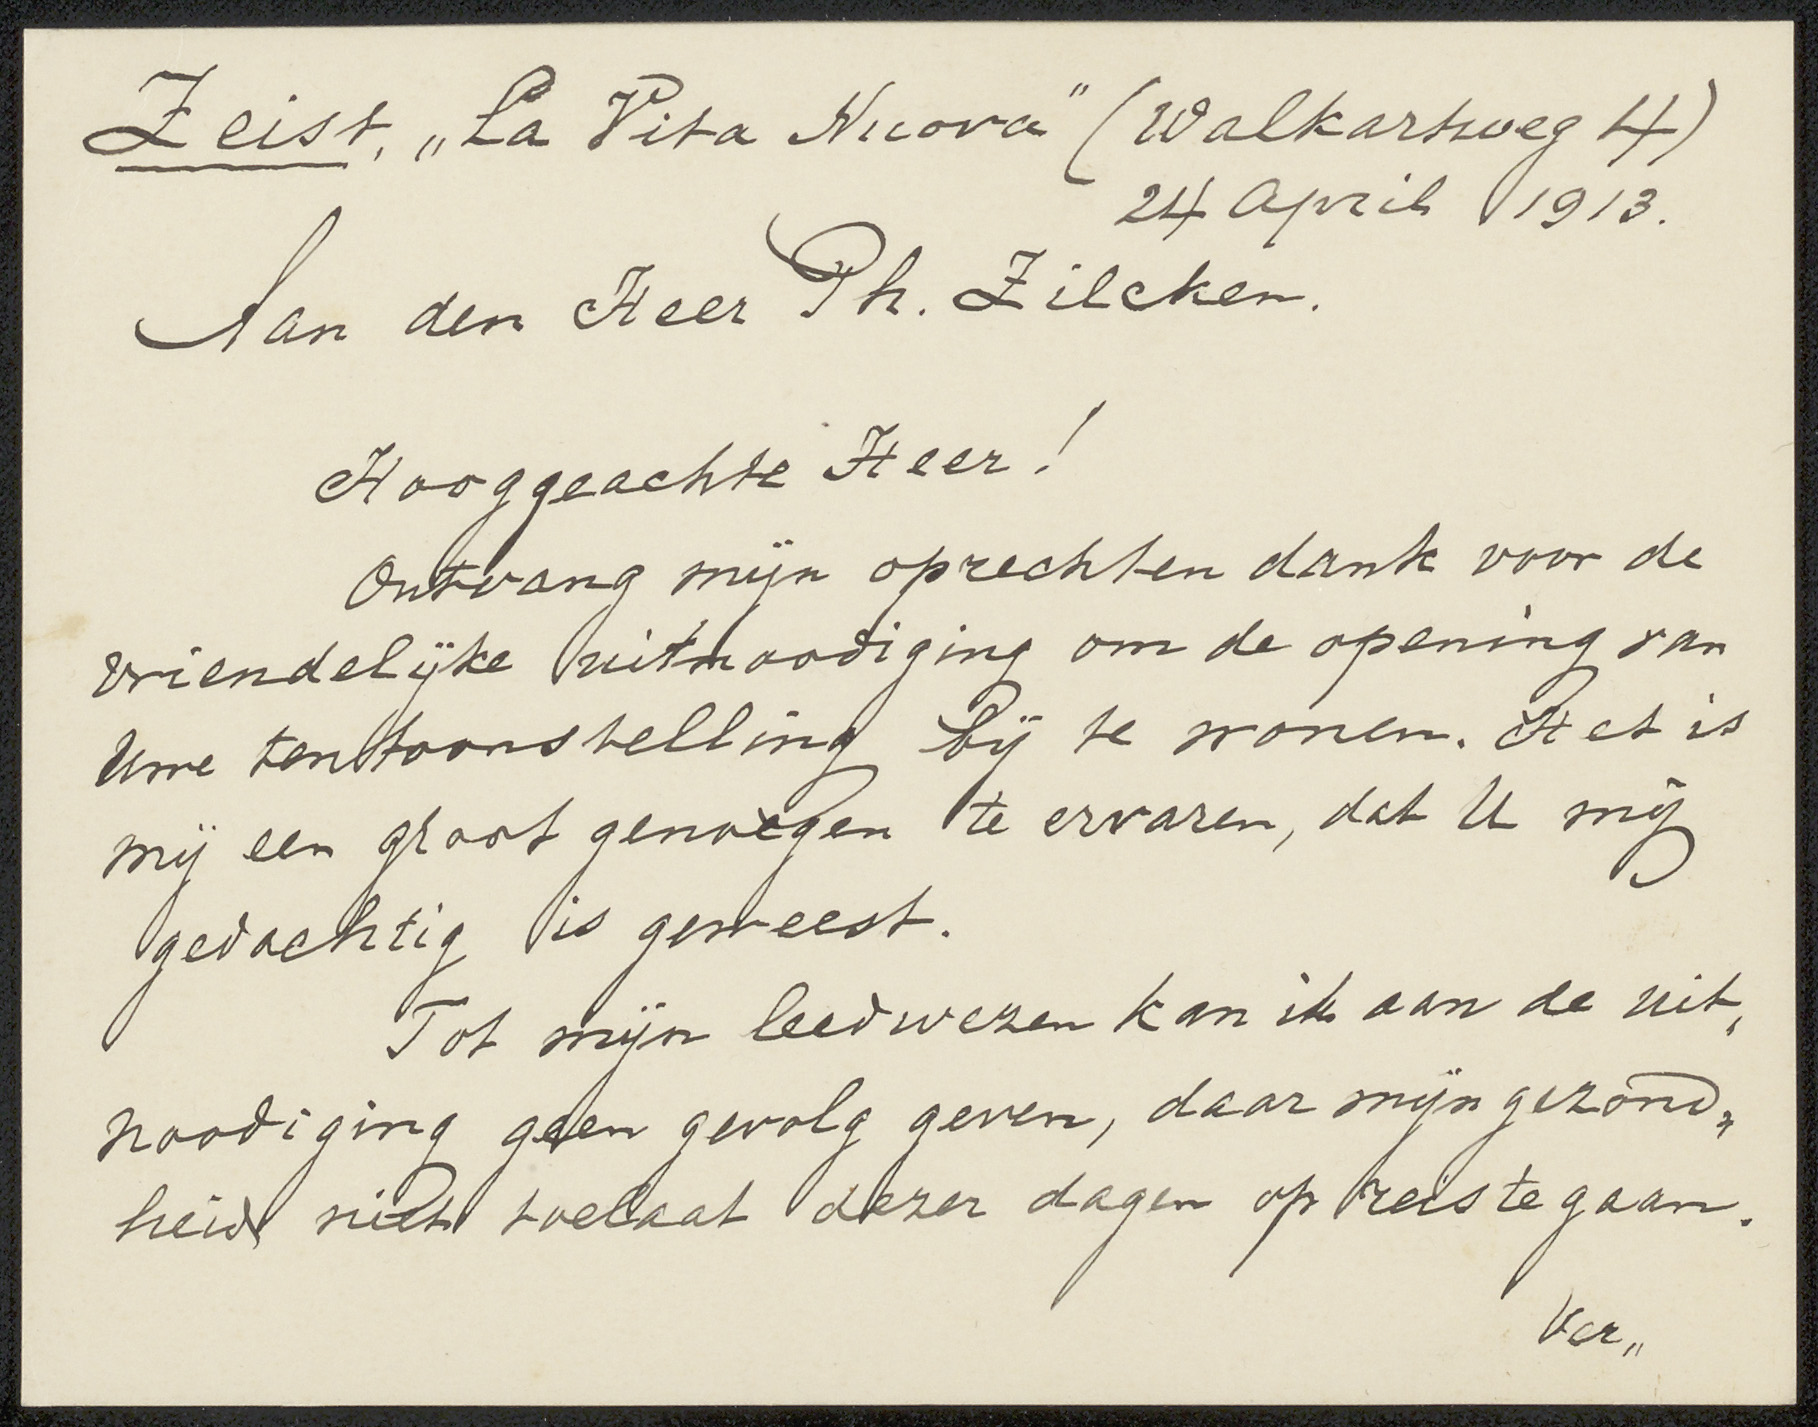 Zeist, „La Vita Nuova" (Walkartweg 4)
24 April 1913.
Aan den Heer Ph. Zilcken.
Hooggeachte Heer!
Ontvang mijn oprechten dank voor de
vriendelijke uitnoodiging om de opening van
Uwe tentoonstelling bij te wonen. Het is
mij een groot genoegen te ervaren, dat U mij
gedachtig is geweest.
Tot mijn leedwezen kan ik aan de uit„
noodiging geen gevolg geven, daar mijn gezond„
heid niet toelaat dezer dagen op reis te gaan.
Ver„